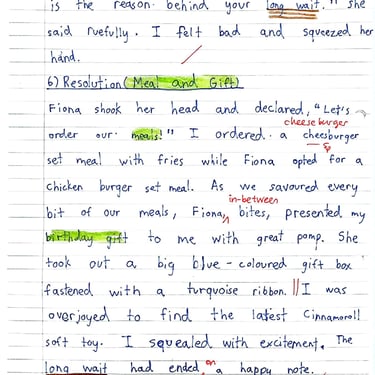 is the reason behind your long wait." She
said ruefully. I felt bad and squeezed her
hand.
6) Resolution (Meal and Gift)
Fiona shook her head and declared, "Let's
cheeseburger
order our meals!" I ordered a cheesburger
sp
set meal with fries while Fiona opted for a
chicken burger set meal. As we savoured every
in-between
bit of our meals, Fiona, bites, presented my
birthday gift to me with great pomp. She
took out a big blue-coloured gift box
fastened with a turquoise ribbon. || I was
overjoyed to find the latest Cinnamoroll
soft toy. I squealed with excitement. The
on
long wait had ended a happy note.